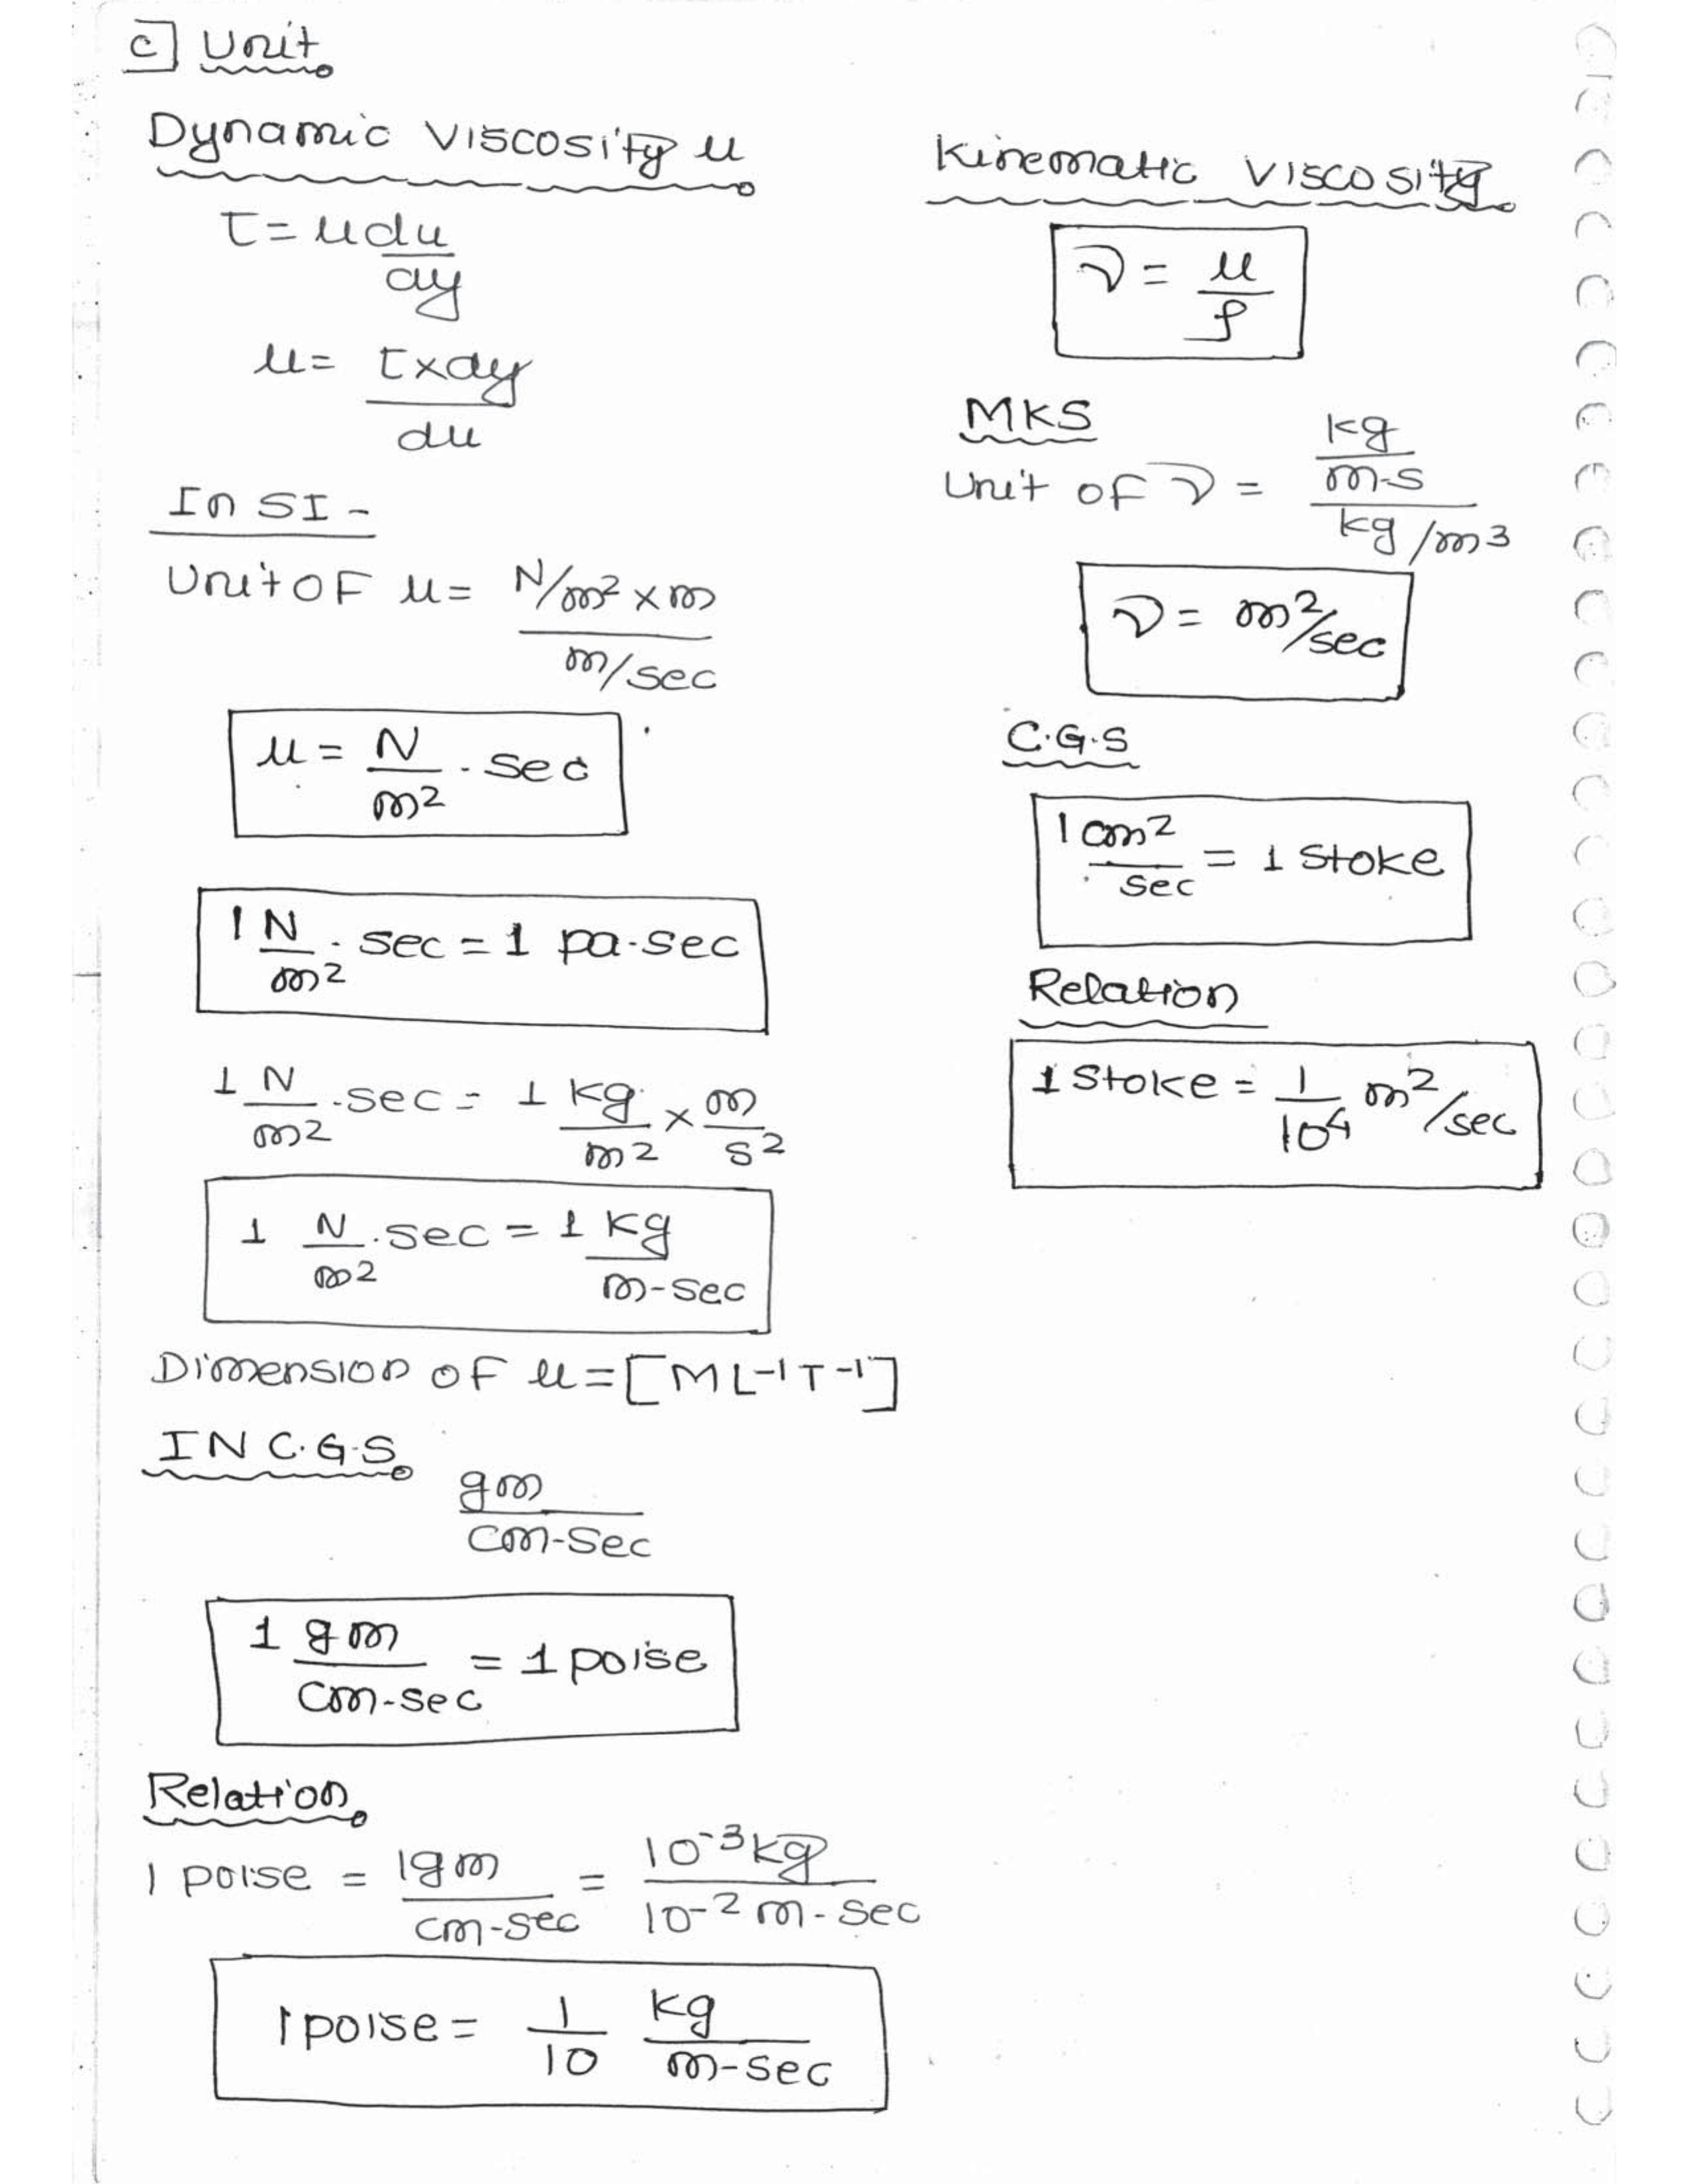 C] Unit
Dynamic Viscosity μ
τ = μ du/dy
μ = τ×dy/du
In SI -
Unit OF μ = N/m² × m / m/sec
μ = N/m² . sec
1 N/m² . sec = 1 pa.sec
1 N/m² .sec = 1 kg/m² × m/s²
1 N/m² .sec = 1 kg/m-sec
Dimension OF μ = [M L⁻¹ T⁻¹]
IN C.G.S.
gm/cm-sec
1 gm/cm-sec = 1 poise
Relation
1 poise = 1gm/cm-sec = 10⁻³kg/10⁻² m-sec
1 poise = 1/10 kg/m-sec
Kinematic Viscosity
ν = μ/ρ
MKS
Unit OF ν = kg/m-s / kg/m³
ν = m²/sec
C.G.S
1 cm²/sec = 1 stoke
Relation
1 Stoke = 1/10⁴ m²/sec